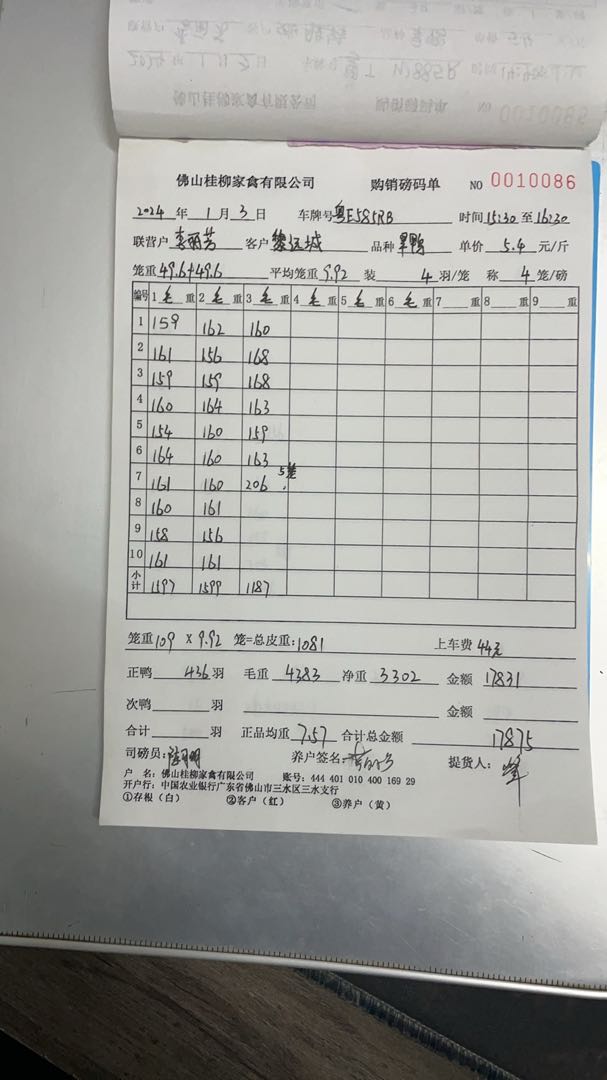 佛山桂柳家禽有限公司 购销磅码单 NO 0010086
2024 年 1 月 3 日 车牌号 粤E585RB 时间 15:30 至 16:30
联营户 李丽芳 客户 黎运城 品种 旱鸭 单价 5.4 元/斤
笼重 49.6+49.6 平均笼重 9.92 装 4 羽/笼 称 4 笼/磅
编号 1 毛 重 2 毛 重 3 毛 重 4 毛 重 5 毛 重 6 毛 重 7 重 8 重 9 重
1 159 162 160
2 161 156 168
3 159 159 168
4 160 164 163
5 154 160 159
6 164 160 163
7 161 160 206 5笼
8 160 161
9 158 156
10 161 161
小计 1597 1599 1187
笼重 109 X 9.92 笼=总皮重: 1081 上车费 44元
正鸭 436 羽 毛重 4383 净重 3302 金额 17831
次鸭 羽 金额
合计 羽 正品均重 7.57 合计总金额 17875
司磅员: 养户签名: 提货人:
户 名: 佛山桂柳家禽有限公司 账号: 444 401 010 400 169 29
开户行: 中国农业银行广东省佛山市三水区三水支行
①存根（白） ②客户（红） ③养户（黄）